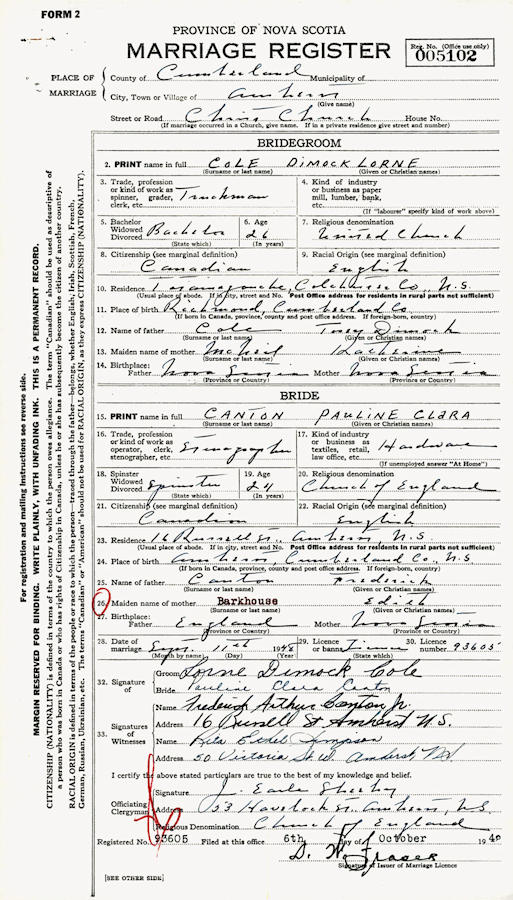 FORM 2
PROVINCE OF NOVA SCOTIA
MARRIAGE REGISTER
Reg. No. (Office use only)
005102
PLACE OF MARRIAGE
County of Cumberland Municipality of
City, Town or Village of Amherst
(Give name)
Street or Road Christ Church House No.
(If marriage occurred in a Church, give name. If in a private residence give street and number)
BRIDEGROOM
2. PRINT name in full COLE DIMOCK LORNE
(Surname or last name) (Given or Christian names)
3. Trade, profession or kind of work as spinner, grader, clerk, etc. Truckman
4. Kind of industry or business as paper mill, lumber, bank, etc.
(If "labourer" specify kind of work above)
5. Bachelor Widowed Divorced Bachelor
(State which)
6. Age 26
(In years)
7. Religious denomination United Church
8. Citizenship (see marginal definition) Canadian
9. Racial Origin (see marginal definition) English
10. Residence Tatamagouche, Colchester Co., N.S.
(Usual place of abode. If in city, street and No. Post Office address for residents in rural parts not sufficient)
11. Place of birth Richmond, Cumberland Co.
(If born in Canada, province, county and post office address. If foreign-born, country)
12. Name of father Cole Dimock
(Surname or last name) (Given or Christian names)
13. Maiden name of mother McNeil Katherine
(Surname or last name) (Given or Christian names)
14. Birthplace: Father Nova Scotia Mother Nova Scotia
(Province or Country) (Province or Country)
BRIDE
15. PRINT name in full CANTON PAULINE CLARA
(Surname or last name) (Given or Christian names)
16. Trade, profession or kind of work as operator, clerk, stenographer, etc. Stenographer
17. Kind of industry or business as textiles, retail, law office, etc. Hardware
(If unemployed answer "At Home")
18. Spinster Widowed Divorced Spinster
(State which)
19. Age 24
(In years)
20. Religious denomination Church of England
21. Citizenship (see marginal definition) Canadian
22. Racial Origin (see marginal definition) English
23. Residence 16 Russell St. Amherst N.S.
(Usual place of abode. If in city, street and No. Post Office address for residents in rural parts not sufficient)
24. Place of birth Amherst, Cumberland Co., N.S.
(If born in Canada, province, county and post office address. If foreign-born, country)
25. Name of father Canton Frederick
(Surname or last name) (Given or Christian names)
26. Maiden name of mother Barkhouse Edith
(Surname or last name) (Given or Christian names)
27. Birthplace: Father England Mother Nova Scotia
(Province or Country) (Province or Country)
28. Date of marriage Sept. 11th 1948
(Month by name) (Day) (Year)
29. Licence or banns License
(State which)
30. Licence number 93605
32. Signature of
Groom Lorne Dimock Cole
Bride Pauline Clara Canton
33. Signatures of Witnesses
Name Frederick Arthur Canton Jr.
Address 16 Russell St Amherst N.S.
Name Rita Ethel Simpson
Address 50 Victoria St W. Amherst N.S.
I certify the above stated particulars are true to the best of my knowledge and belief.
Officiating Clergyman
Signature J. Earle
Address 33 Havelock St. Amherst, N.S.
Religious Denomination Church of England
Registered No. 93605 Filed at this office 6th day of October 1948
D. W. Fraser
Signature of Issuer of Marriage Licence
[SEE OTHER SIDE]
For registration and mailing instructions see reverse side.
MARGIN RESERVED FOR BINDING. WRITE PLAINLY, WITH UNFADING INK. THIS IS A PERMANENT RECORD.
CITIZENSHIP (NATIONALITY) is defined in terms of the country to which the person owes allegiance. The term "Canadian" should be used as descriptive of
a person who was born in Canada or who has rights of Citizenship in Canada, unless he or she has subsequently become the citizen of another country.
RACIAL ORIGIN is defined in terms of the people or race to which the person—traced through the father—belongs, whether English, Irish, Scottish, French,
German, Russian, Ukrainian, etc. The terms "Canadian" or "American" should not be used for RACIAL ORIGIN, as they express CITIZENSHIP (NATIONALITY).